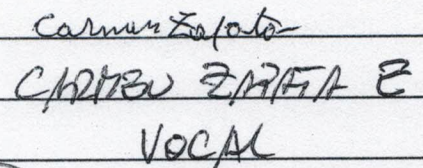 Carmen Zapata
CARMEN ZAPATA E
VOCAL